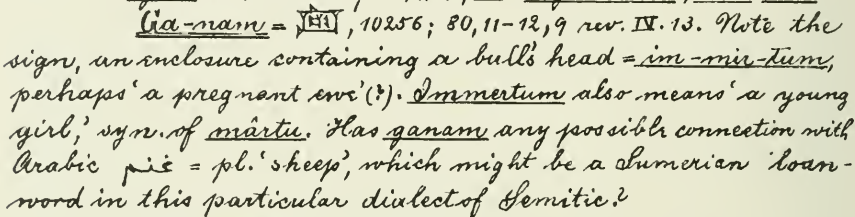 Ga-nam = , 10256; 80, 11-12, 9 rev. IV. 13. Note the
sign, an enclosure containing a bull's head = im-mir-tum,
perhaps 'a pregnant ewe'(?). Immertum also means 'a young
girl,' syn. of mârtu. Has ganam any possible connection with
Arabic غنم = pl. 'sheep', which might be a Sumerian loan-
word in this particular dialect of Semitic?